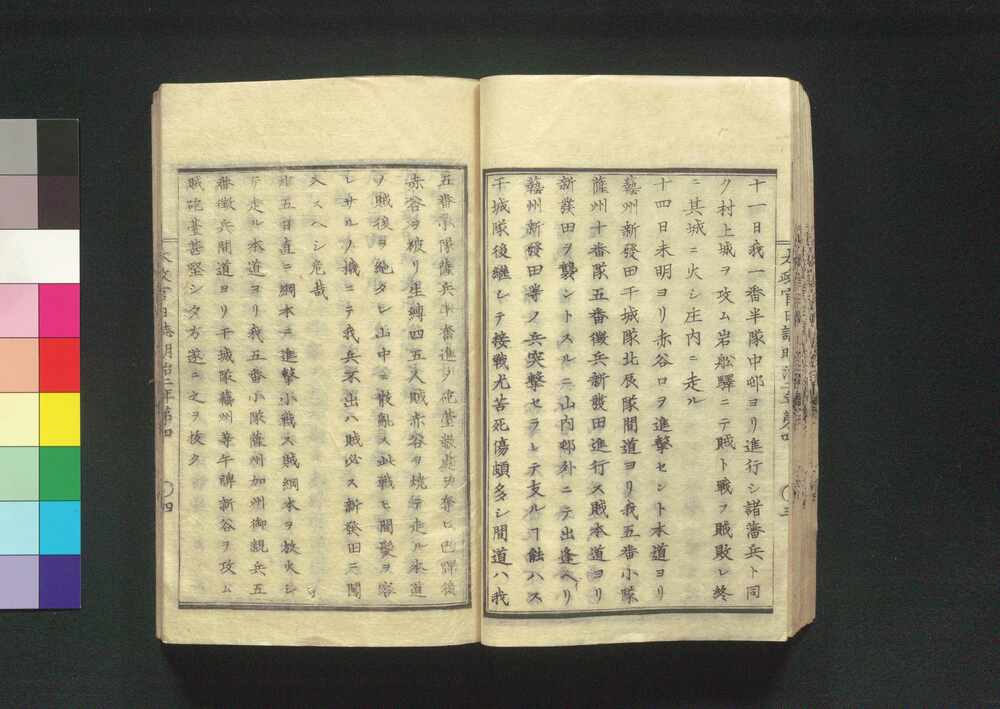 十一日我一番半隊中郷ヨリ進行シ諸藩兵ト同
ク村上城ヲ攻ム岩船驛ニテ賊ト戰フ賊敗レ終
ニ其城ニ火シ庄内ニ走ル
十四日未明ヨリ赤谷口ヲ進擊セント本道ヨリ
藝州新發田千城隊北辰隊間道ヨリ我五番小隊
薩州十番隊五番徴兵新發田進行ス賊本道ヨリ
新發田ヲ襲ントスルニ山内郷外ニテ出逢ヘリ
藝州新發田等ノ兵突擊セラレテ支ルヿ能ハス
千城隊後繼シテ接戰尤苦死傷頗多シ間道ハ我
太政官日誌明治二年第四 〇三
五番小隊薩兵ト奮進シ砲臺嚴ヲ奪ヒ巳牌後
赤谷ヲ破リ生縛四五人賊赤谷ヲ燒テ走ル本道
ヲ賊後ヲ絶タレ山中ニ散亂ス此戰ヒ間髪ヲ容
レサルノ機ニテ我兵不出ハ賊必ス新發田ニ闖
入スヘシ危哉
十五日直ニ綱木ニ進擊小戰ス賊綱木ヲ放火シ
テ走ル本道ヨリ我五番小隊薩州加州御親兵五
番徴兵間道ヨリ千城隊藝州等午牌新谷ヲ攻ム
賊砲臺甚堅シ夕方遂ニ之ヲ拔ク
太政官日誌明治二年第四 〇四